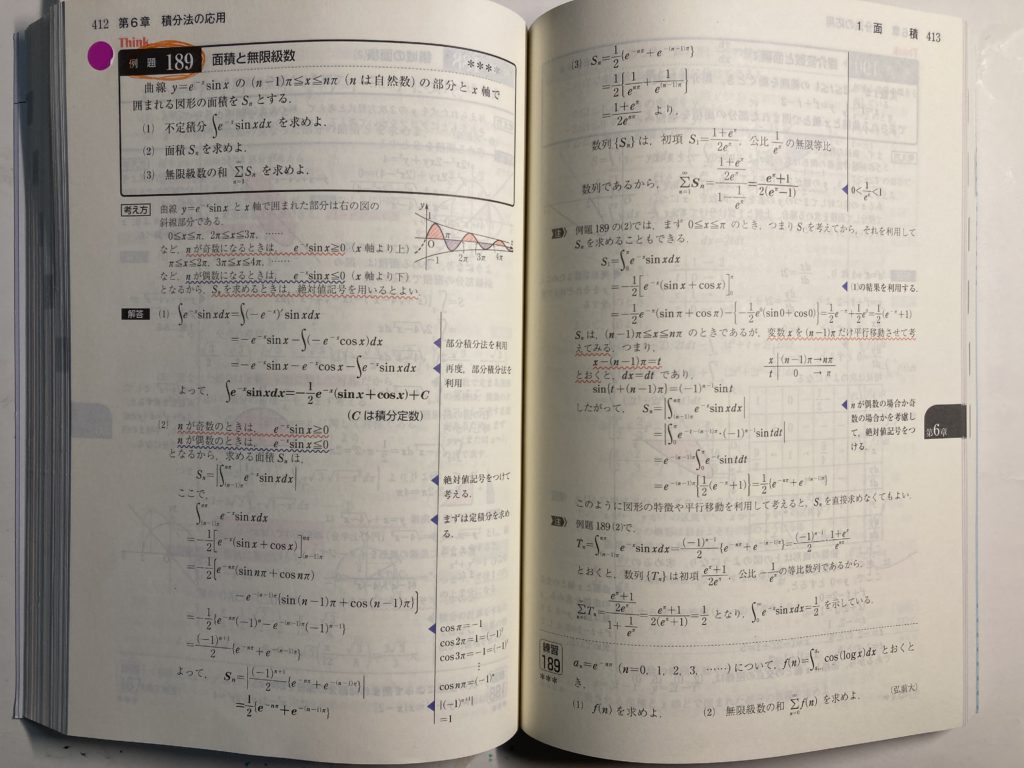 412 第6章 積分法の応用
Think
例題 189 面積と無限級数 ****
曲線 y=e^{-x}sin x の (n−1)π≦x≦nπ (n は自然数) の部分と x 軸で
囲まれる図形の面積を Sₙ とする.
(1) 不定積分 ∫e^{-x}sin x dx を求めよ.
(2) 面積 Sₙ を求めよ.
(3) 無限級数の和 Σ_{n=1}^{∞} Sₙ を求めよ.
考え方 曲線 y=e^{-x}sin x と x 軸で囲まれた部分は右の図の
斜線部分である.
0≦x≦π, 2π≦x≦3π, ……
など, n が奇数になるときは, e^{-x}sin x≧0 (x 軸より上)
π≦x≦2π, 3π≦x≦4π, ……
など, n が偶数になるときは, e^{-x}sin x≦0 (x 軸より下)
となるから, Sₙ を求めるときは, 絶対値記号を用いるとよい.
y
1
O π 2π 3π 4π x
−1
解答 (1) ∫e^{-x}sin x dx=∫(−e^{-x})′sin x dx
=−e^{-x}sin x−∫(−e^{-x}cos x)dx
部分積分法を利用
=−e^{-x}sin x−e^{-x}cos x−∫e^{-x}sin x dx
再度, 部分積分法を
利用
よって, ∫e^{-x}sin x dx=−1/2 e^{-x}(sin x+cos x)+C
(C は積分定数)
(2) n が奇数のときは, e^{-x}sin x≧0
n が偶数のときは, e^{-x}sin x≦0
となるから, 求める面積 Sₙ は,
Sₙ=|∫_{(n−1)π}^{nπ} e^{-x}sin x dx|
絶対値記号をつけて
考える.
ここで,
∫_{(n−1)π}^{nπ} e^{-x}sin x dx
まずは定積分を求め
る.
=−1/2[e^{-x}(sin x+cos x)]_{(n−1)π}^{nπ}
=−1/2{e^{-nπ}(sin nπ+cos nπ)
−e^{-(n−1)π}{sin(n−1)π+cos(n−1)π}}
=−1/2{e^{-nπ}(−1)ⁿ−e^{-(n−1)π}(−1)^{n−1}}
cos π=−1
cos 2π=1=(−1)²
=(−1)^{n+1}/2 {e^{-nπ}+e^{-(n−1)π}}
cos 3π=−1=(−1)³
⋮
よって, Sₙ=|(−1)^{n+1}/2 {e^{-nπ}+e^{-(n−1)π}}|
cos nπ=(−1)ⁿ
=1/2{e^{-nπ}+e^{-(n−1)π}}
|(−1)^{n+1}|
=1
1 面 積 413
(3) Sₙ=1/2{e^{-nπ}+e^{-(n−1)π}}
=1/2{1/e^{nπ}+1/e^{(n−1)π}}
=(1+e^π)/2e^{nπ} より,
数列 {Sₙ} は, 初項 S₁=(1+e^π)/2e^π, 公比 1/e^π の無限等比
数列であるから, Σ_{n=1}^{∞} Sₙ=((1+e^π)/2e^π)/(1−1/e^π)=(e^π+1)/2(e^π−1)
0<1/e^π<1
注 例題 189 の(2)では, まず 0≦x≦π のとき, つまり S₁ を考えてから, それを利用して
Sₙ を求めることもできる.
S₁=∫_0^π e^{-x}sin x dx
=−1/2[e^{-x}(sin x+cos x)]_0^π
(1)の結果を利用する.
=−1/2 e^{-π}(sin π+cos π)−{−1/2 e⁰(sin 0+cos 0)}=1/2 e^{-π}+1/2 e⁰=1/2(e^{-π}+1)
Sₙ は, (n−1)π≦x≦nπ のときであるが, 変数 x を (n−1)π だけ平行移動させて考
えてみる. つまり,
x−(n−1)π=t
x | (n−1)π→nπ
とおくと, dx=dt であり,
t | 0 → π
sin{t+(n−1)π}=(−1)^{n−1}sin t
したがって, Sₙ=|∫_{(n−1)π}^{nπ} e^{-x}sin x dx|
n が偶数の場合か奇
数の場合かを考慮し
て, 絶対値記号をつ
ける.
=|∫_0^π e^{-t−(n−1)π}·(−1)^{n−1}sin t dt|
=e^{-(n−1)π}∫_0^π e^{-t}sin t dt
=e^{-(n−1)π}{1/2(e^{-π}+1)}=1/2{e^{-nπ}+e^{-(n−1)π}}
このように図形の特徴や平行移動を利用して考えると, Sₙ を直接求めなくてもよい.
第6章
注 例題 189(2)で,
Tₙ=∫_{(n−1)π}^{nπ} e^{-x}sin x dx=(−1)^{n−1}/2 {e^{-nπ}+e^{-(n−1)π}}=(−1)^{n−1}/2·(1+e^π)/e^{nπ}
とおくと, 数列 {Tₙ} は初項 (e^π+1)/2e^π, 公比 −1/e^π の等比数列であるから,
Σ_{n=1}^{∞} Tₙ=((e^π+1)/2e^π)/(1+1/e^π)=(e^π+1)/2(e^π+1)=1/2 となり, ∫_0^∞ e^{-x}sin x dx=1/2 を示している.
練習 189 ***
aₙ=e^{-nπ} (n=0, 1, 2, 3, ……) について, f(n)=∫ cos(log x)dx とおくと
き,
(1) f(n) を求めよ. (2) 無限級数の和 Σ_{n=1}^{∞} f(n) を求めよ. (弘前大)